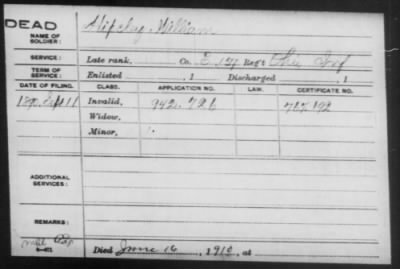 DEAD
NAME OF SOLDIER: Slifslag, William
SERVICE: Late rank, Co. E, 157 Reg't Ohio Inf
TERM OF SERVICE: Enlisted , 1 Discharged , 1
DATE OF FILING. CLASS. APPLICATION No. LAW. CERTIFICATE No.
1890 Sept 11 Invalid, 942.726
Widow,
Minor,
ADDITIONAL SERVICES:
REMARKS:
Died June 16, 1910, at